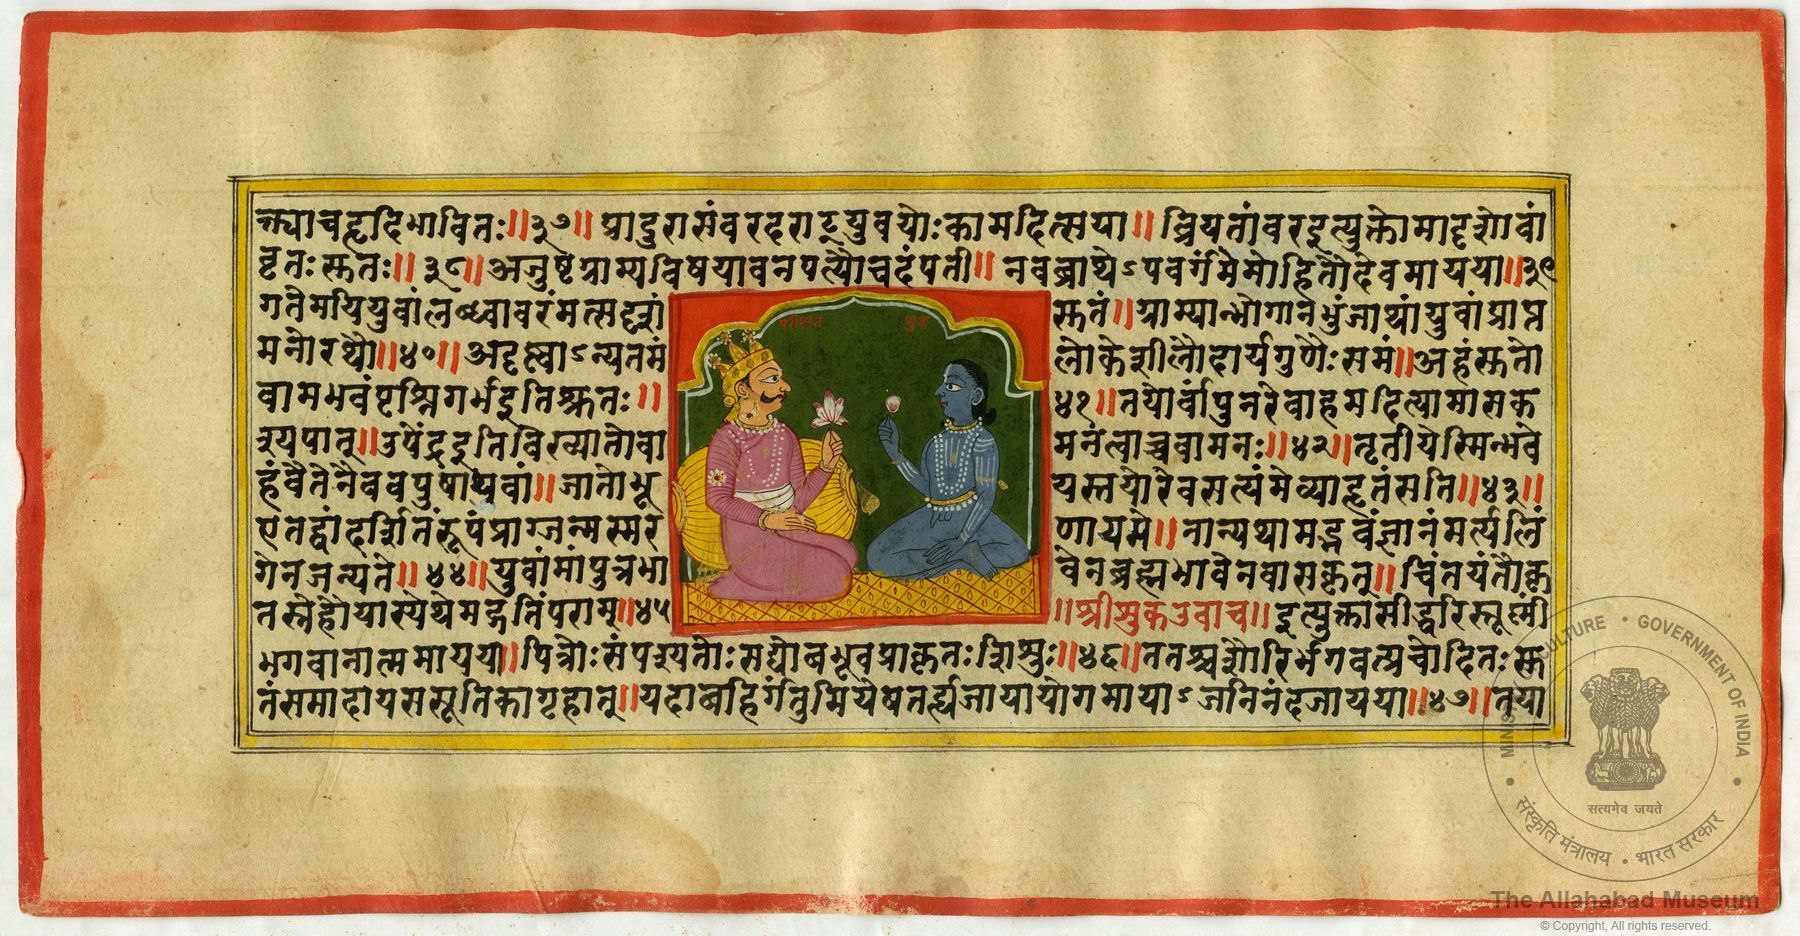 क्त्याचहृदिभावितः॥३७॥ प्रादुरासंवरदराट्युवयोःकामदित्सया॥ व्रियतांवरइत्युक्तोमादृशोवां
वृतःसुतः॥ ३८॥अजुष्टग्राम्यविषयावनपत्यौचदंपती॥ नवव्राथेऽपवर्गंमेमोहितौदेवमायया॥३९
गतेमयियुवांलब्ध्वावरंमत्सदृशं सुतं॥ग्राम्यान्भोगानभुंजाथांयुवांप्राप्त
मनोरथौ॥४०॥अदृष्ट्वाऽन्यतमं लोकेशीलौदार्यगुणैःसमं॥अहंसुतो
वामभवंपृश्निगर्भइतिश्रुतः॥ ४१॥तयोर्वांपुनरेवाहमदित्यामासक
श्यपात्॥उपेंद्रइतिविख्यातोवा मनत्वाच्चवामनः॥४२॥तृतीयेस्मिन्भवे
हंवैतेनैववपुषाथवां॥जातोभू यस्तयोरेवसत्यंमेव्याहृतंसति॥४३॥
एतद्वांदर्शितंरूपंप्राग्जन्मस्मर णायमे॥नान्यथामद्भवंज्ञानंमर्त्यलिं
गेनजन्यते॥ ४४॥युवांमांपुत्रभा वेनब्रह्मभावेनवासकृत्॥चिंतयंतौकृ
तस्नेहौयास्येथेमद्गतिंपराम्॥४५ ॥श्रीसुकउवाच॥इत्युक्तासीद्धरिस्तूष्णीं
भगवानात्ममायया॥पित्रोःसंपश्यतोःसद्योबभूवप्राकृतःशिसुः॥४६॥ततश्चशौरिर्भगवत्प्रचोदितःसु
तंसमादायससूतिकागृहात्॥यदाबहिर्गंतुमियेषतर्ह्यजायायोगमायाऽजनिनंदजायया॥४७॥तया
MINISTRY OF CULTURE • GOVERNMENT OF INDIA
सत्यमेव जयते
संस्कृति मंत्रालय • भारत सरकार
The Allahabad Museum
© Copyright, All rights reserved.